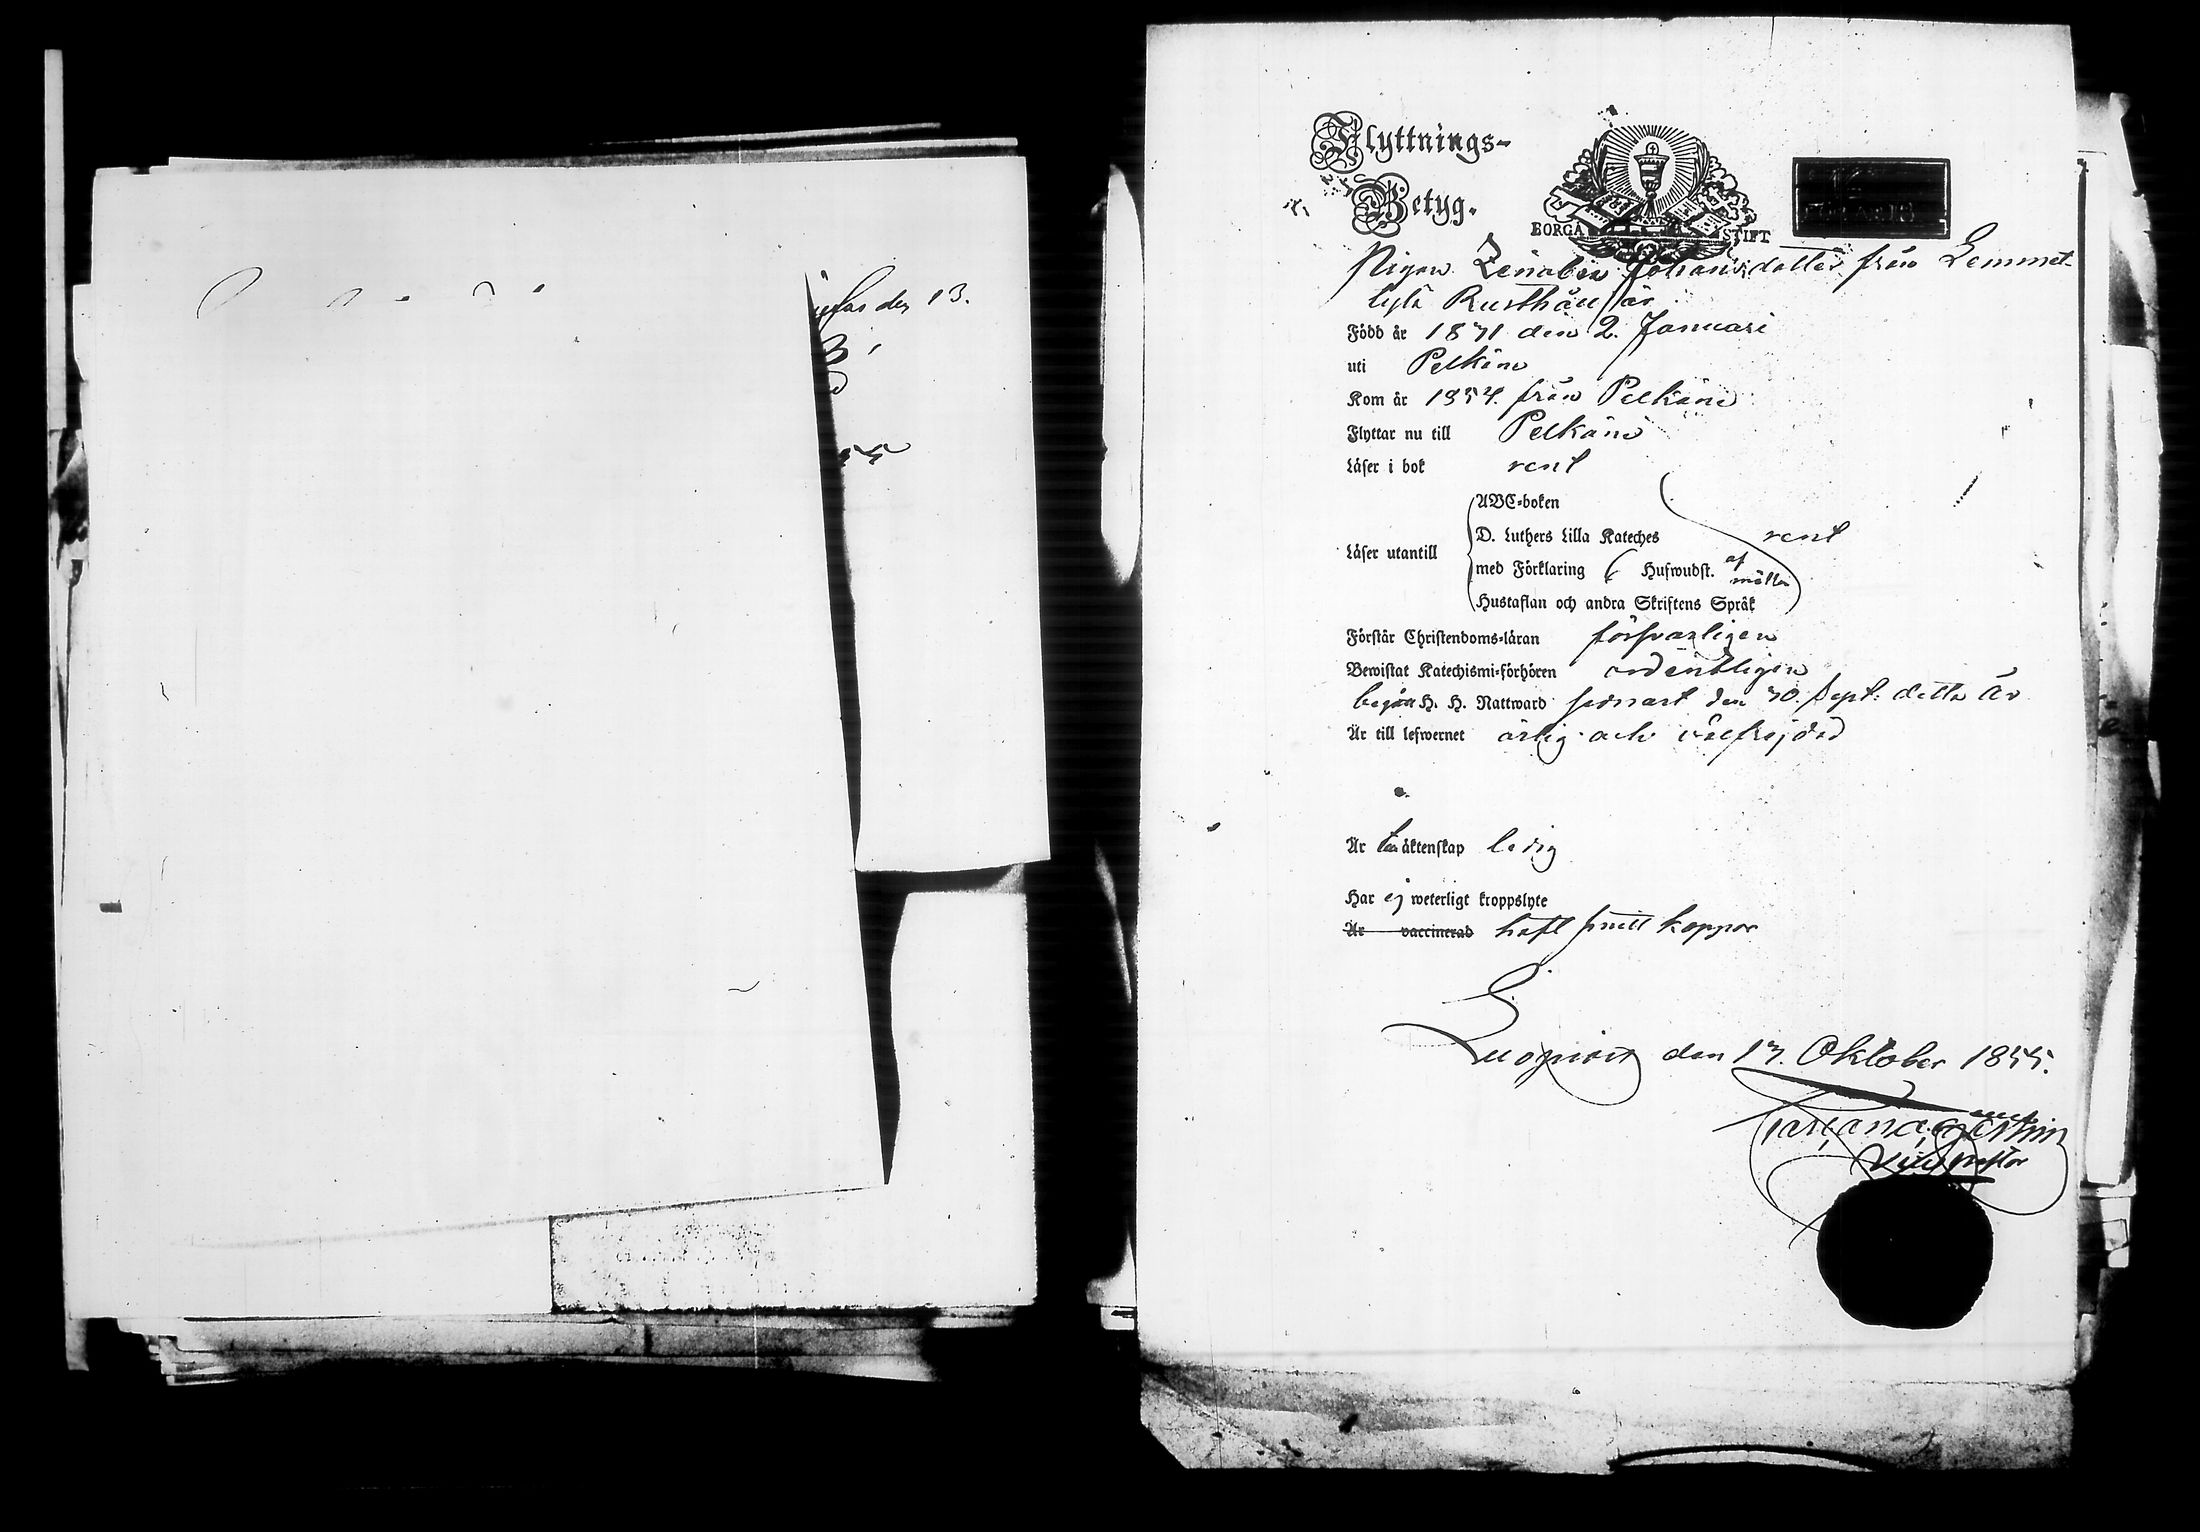 den 13.
Flyttnings-
Betyg.
BORGÅ STIFT
Pigan Johansdotter från Lemmet-
lylä Rusthåll är
Född år 1831 den 2. Januari
uti Pelkäne
Kom år 1854. från Pelkäne
Flyttar nu till Pelkäne
Läser i bok rent
Läser utantill
ABC-boken
D. Luthers Lilla Kateches rent
med Förklaring 6 Hufwudst. af
Hustaflan och andra Skriftens Språk
Förstår Christendoms-läran försvarligen
Bewistat Katechismi-förhören ordentligen
begått H. H. Nattward senast den 30. Sept. detta år
Är till lefwernet ärlig och välfrejdad
Är till äktenskap ledig
Har ej weterligt kroppslyte
Är vaccinerad haft smittkoppor
Luopiois den 13. Oktober 1855.
Vice pastor